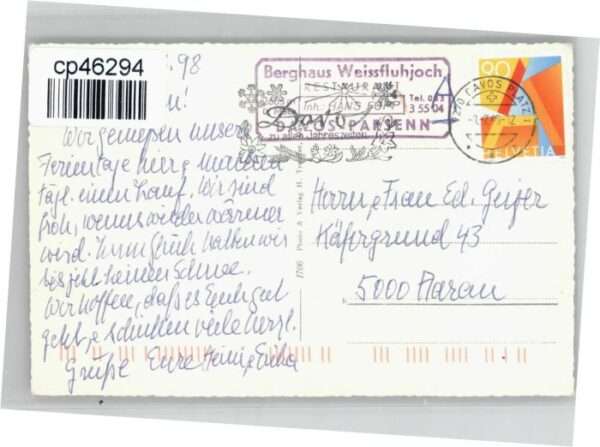 cp46294
.98
Berghaus Weissfluhjoch
RESTAURANT
Inh. HANS
Tel. 083
3 55 04
DAVOS-PARSENN
Davos
zu allen Jahreszeiten
A
DAVOS PLATZ
90
HELVETIA
Wir geniessen unsere
Ferientage hier, machen
tägl. einen Lauf. Wir sind
froh, wenn's wieder wärmer
wird. Zum Glück hatten wir
bis jetzt keinen Schnee.
Wir hoffen, dass es Euch gut
geht & schicken viele herzl.
Grüsse Eure
Herrn & Frau Ed. Geiser
Käfergrund 43
5000 Aarau